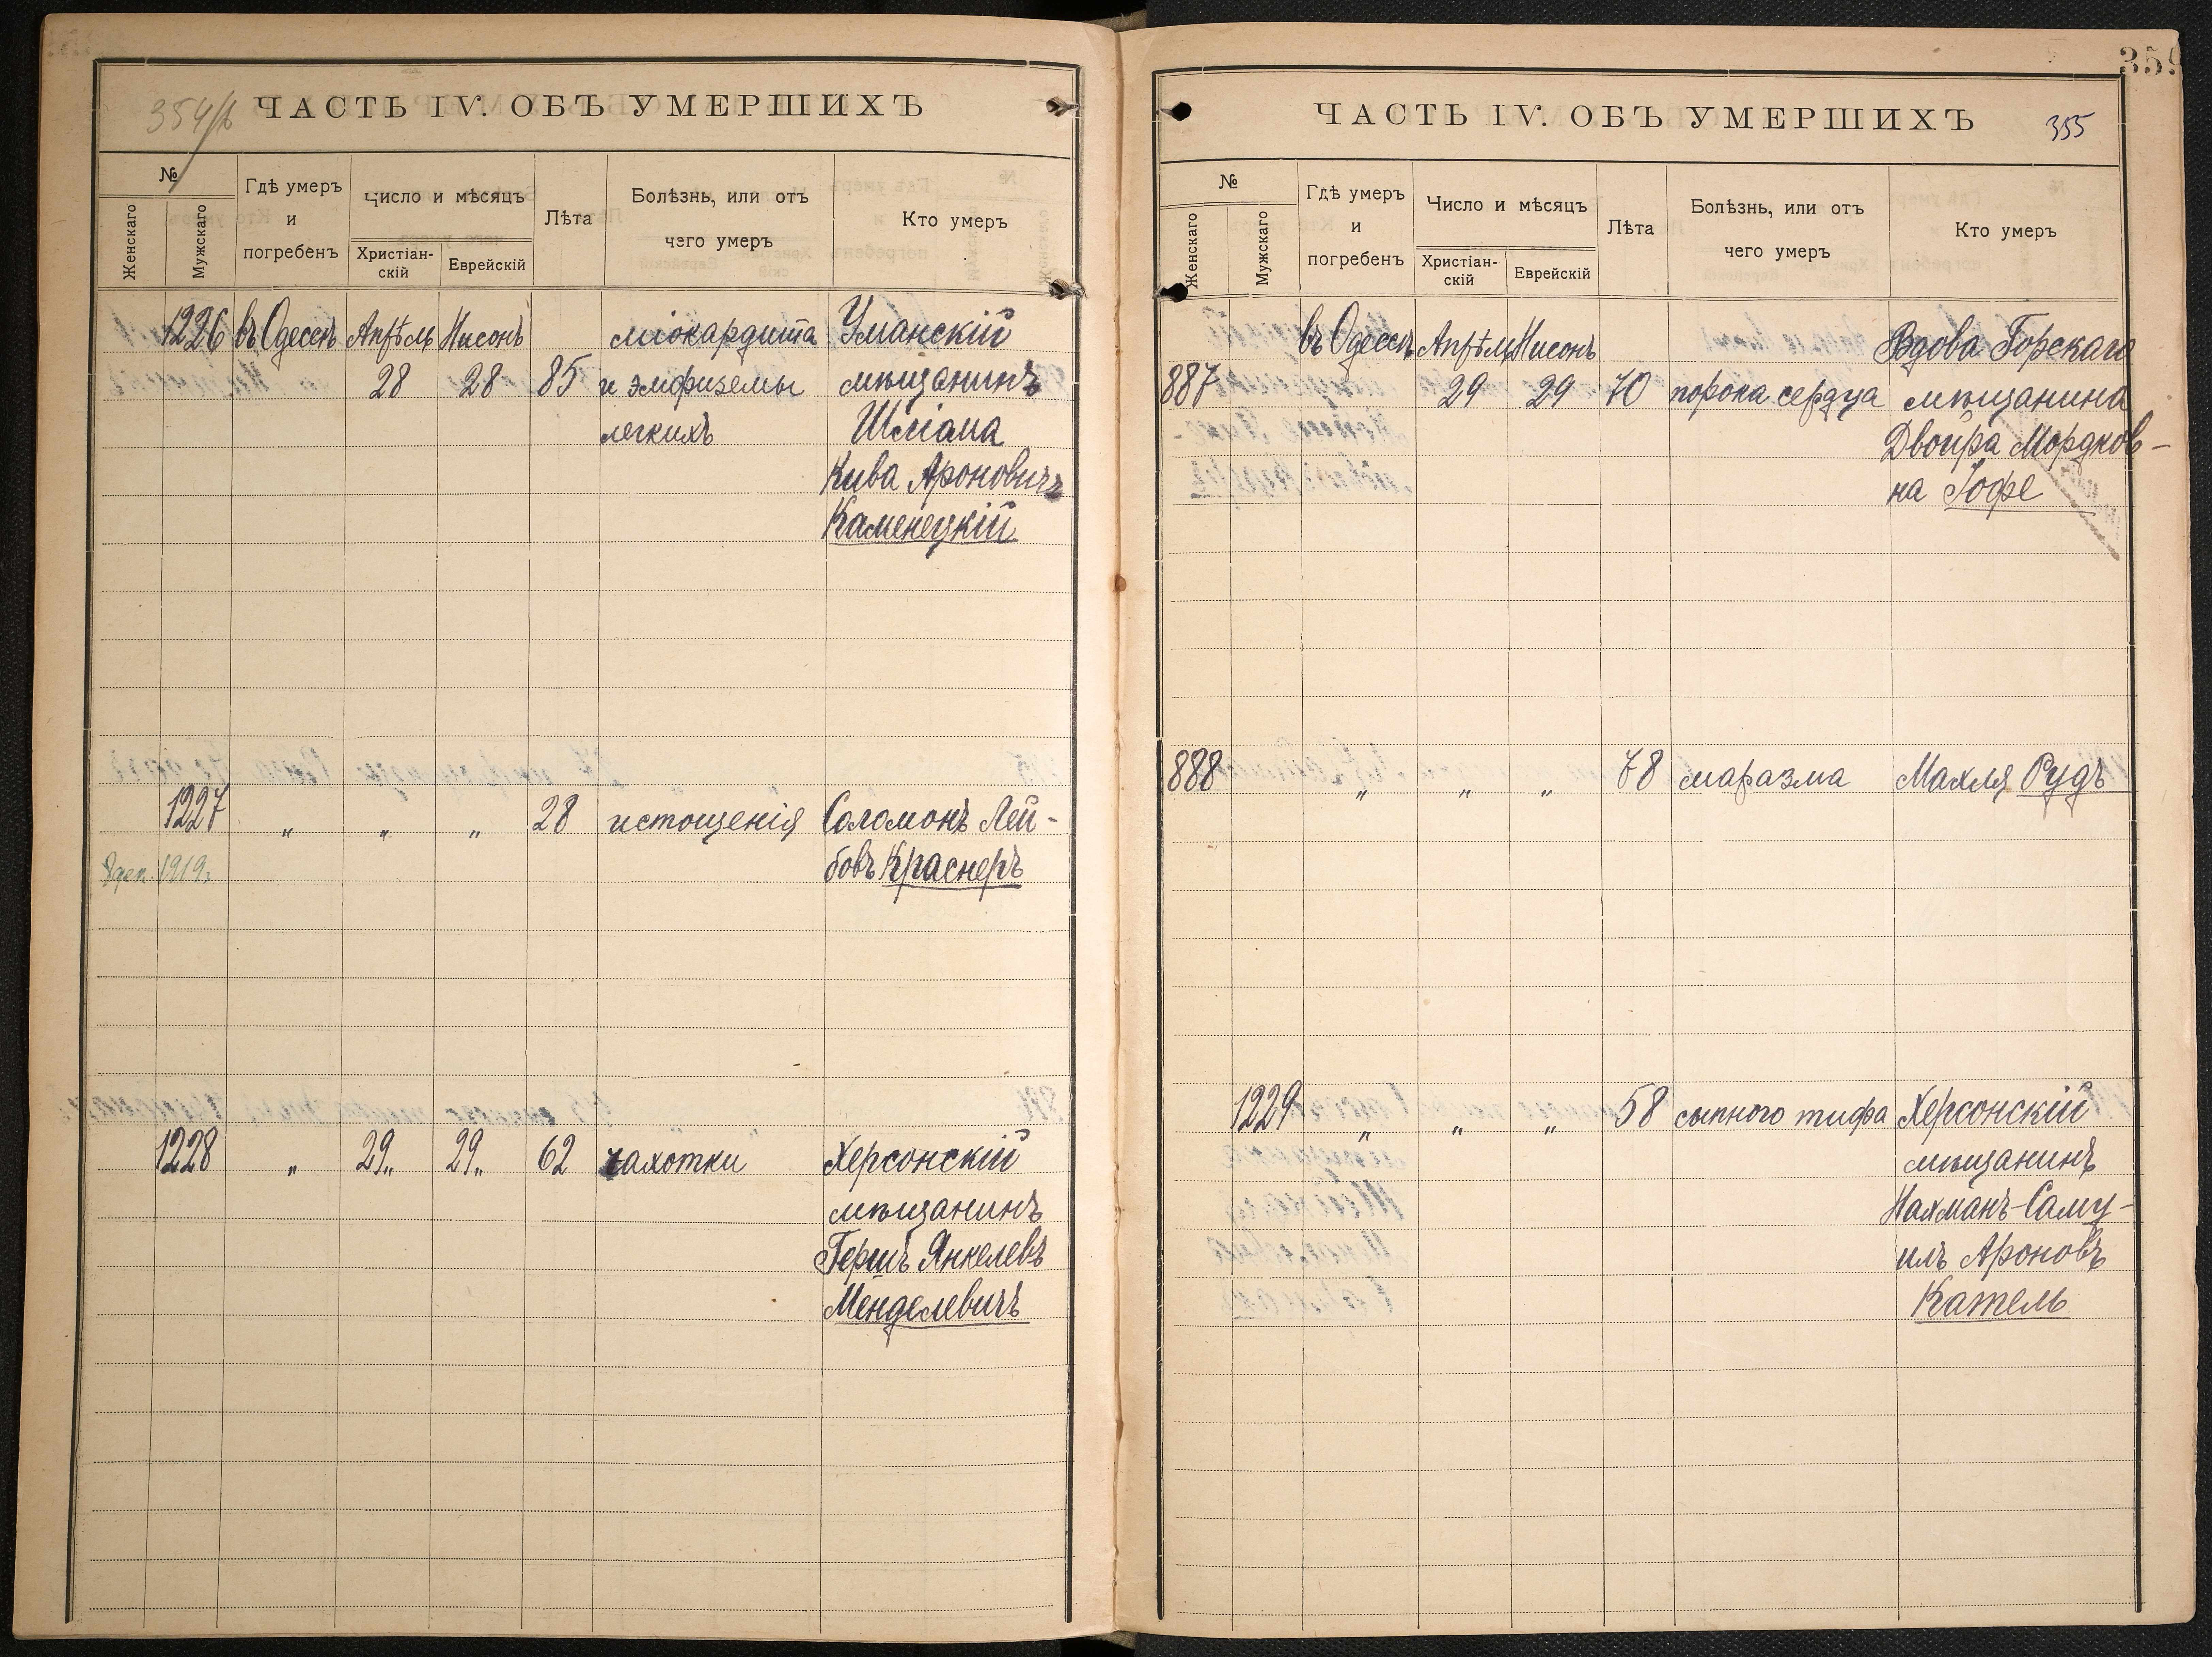 354/ѣ
ЧАСТЬ IV. ОБЪ УМЕРШИХЪ
№
Женскаго
Мужскаго
Гдѣ умеръ
и
погребенъ
Число и мѣсяцъ
Христіан-
скій
Еврейскій
Лѣта
Болѣзнь, или отъ
чего умеръ
Кто умеръ
1226 въ Одессѣ Апрѣль Нисонъ міокардита Уманскій
28 28 85 и эмфиземы мѣщанинъ
легкихъ Шліома
Кива Ароновичъ
Каменецкій
1227 „ „ „ 28 истощенія Соломонъ Лей-
1919г. бовъ Краснеръ
1228 „ 29„ 29„ 62 чахотки Херсонскій
мѣщанинъ
Гершъ Янкелевъ
Менделевичъ
359
ЧАСТЬ IV. ОБЪ УМЕРШИХЪ
355
№
Женскаго
Мужскаго
Гдѣ умеръ
и
погребенъ
Число и мѣсяцъ
Христіан-
скій
Еврейскій
Лѣта
Болѣзнь, или отъ
чего умеръ
Кто умеръ
въ Одессѣ Апрѣль Нисонъ Вдова Горскаго
887 29 29 70 порока сердца мѣщанина
Двойра Мордков-
на Гофе
888 „ „ „ 78 маразма Махля Рудъ
1229 „ „ „ 58 сыпного тифа Херсонскій
мѣщанинъ
Нахманъ-Саму-
илъ Ароновъ
Катель